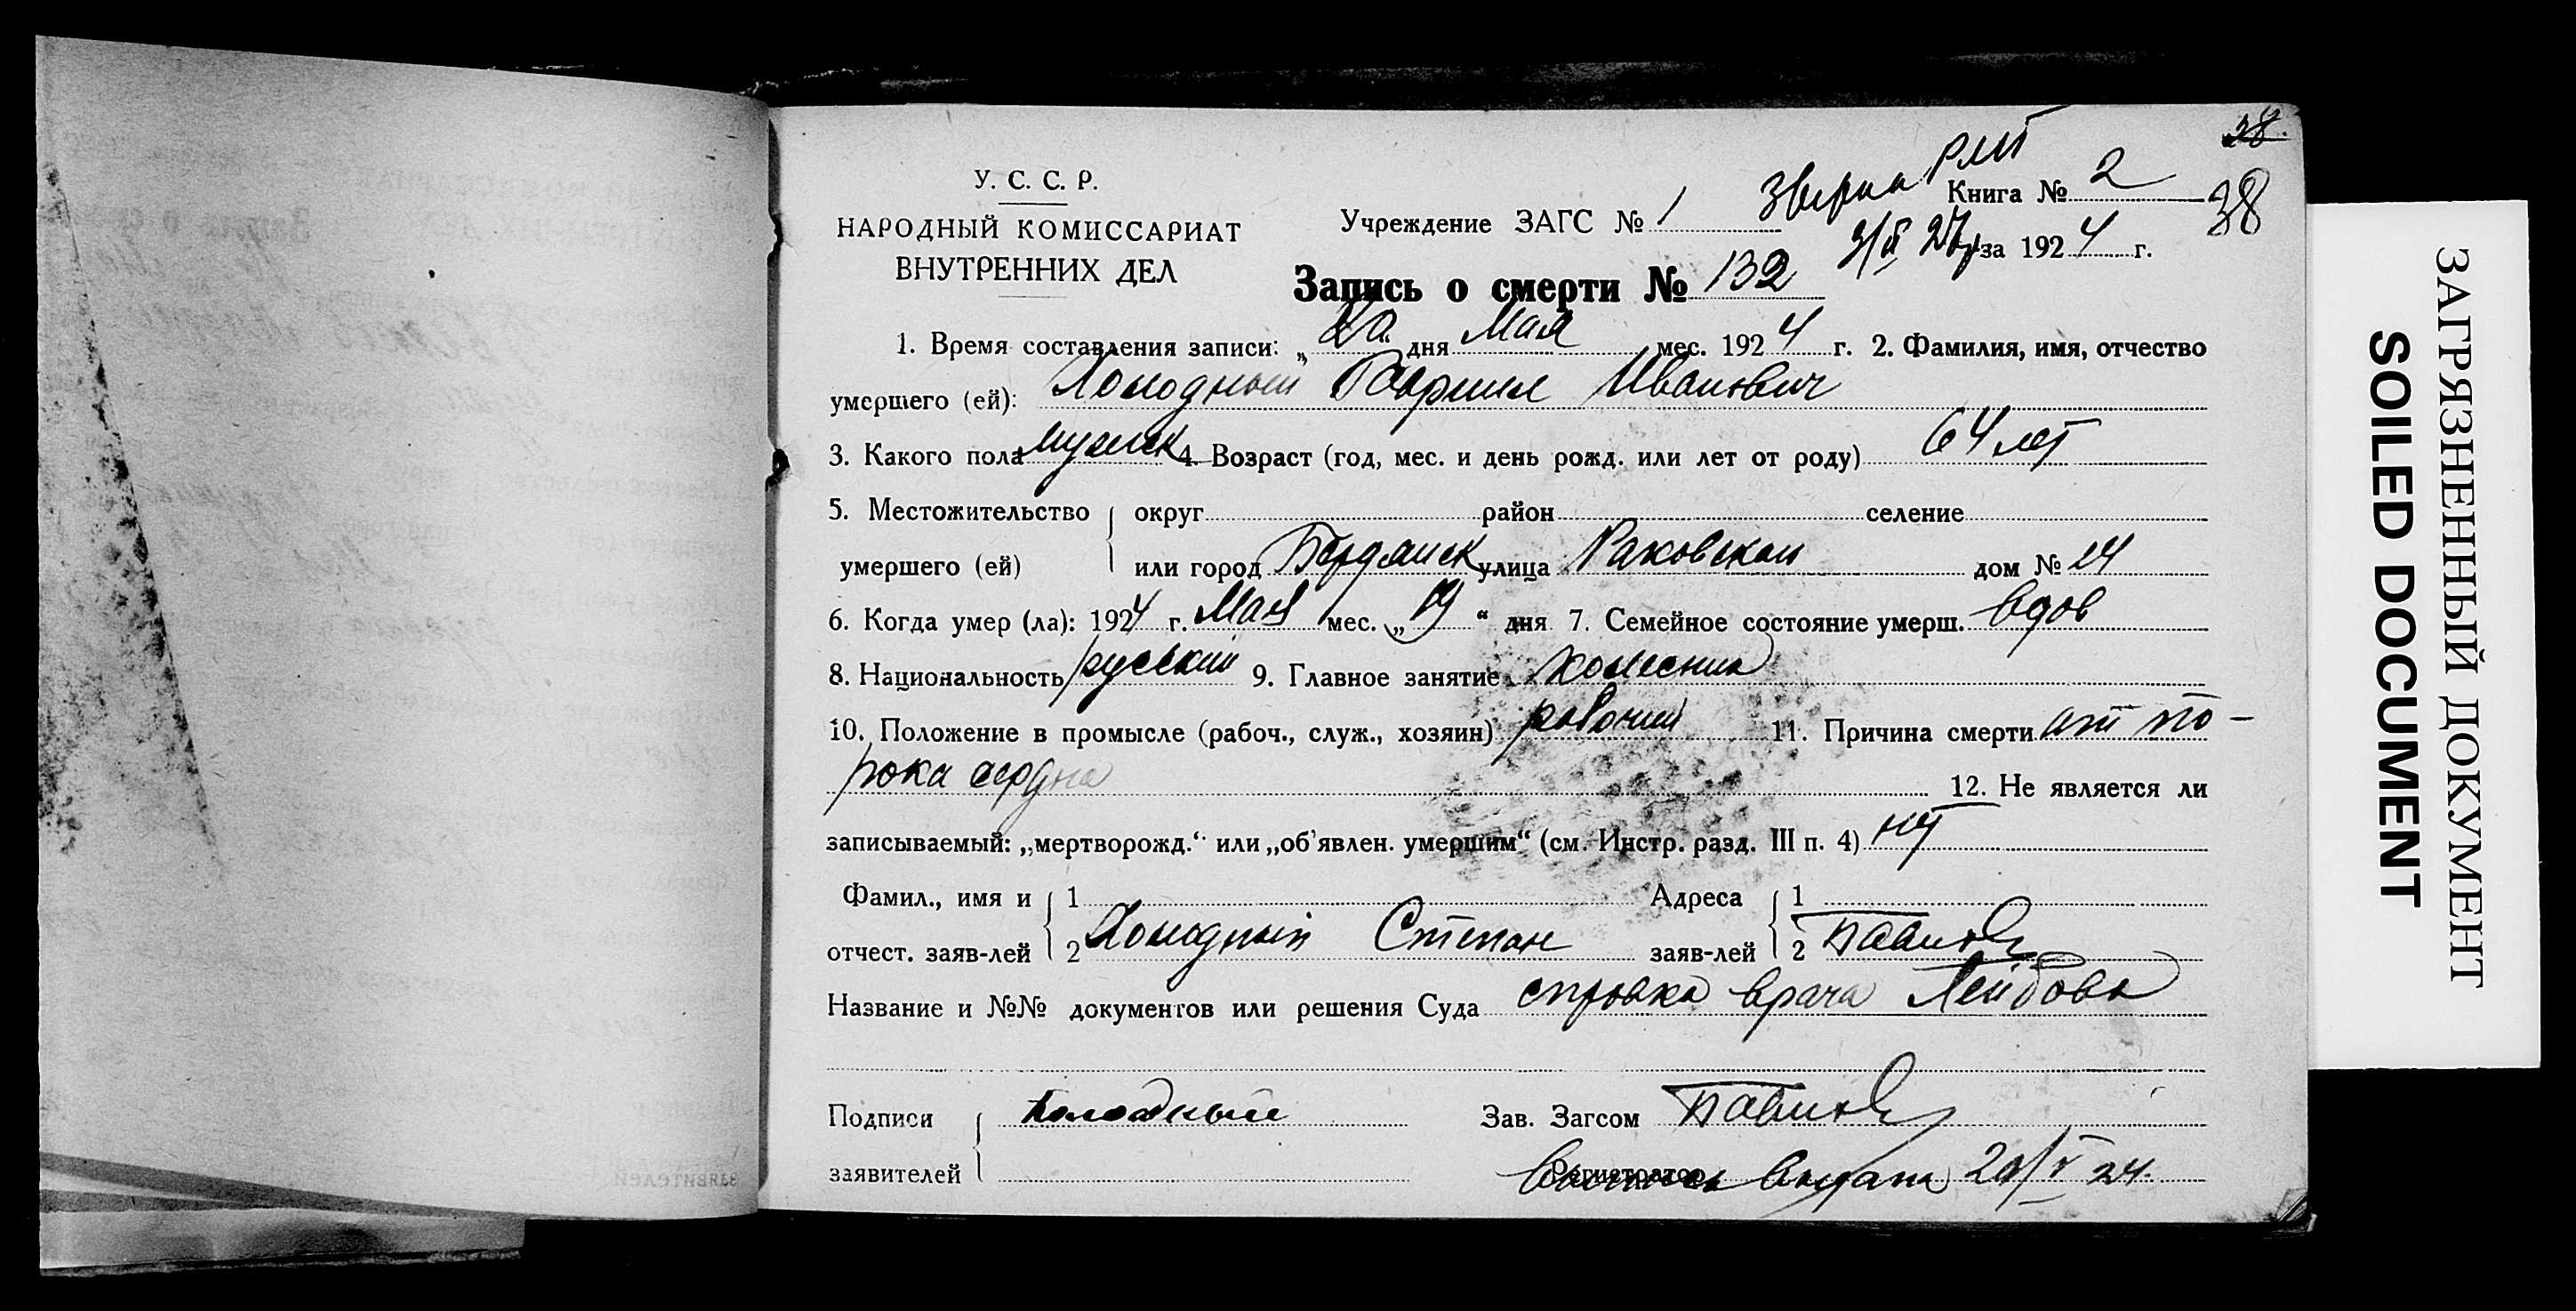 38.
У. С. С. Р.
НАРОДНЫЙ КОМИССАРИАТ
ВНУТРЕННИХ ДЕЛ
Учреждение ЗАГС № 1
Книга № 2
38
за 1924 г.
Запись о смерти № 132
1. Время составления записи: „ 20 дня Мая мес. 1924 г. 2. Фамилия, имя, отчество
умершего (ей): Холодный Гавриил Иванович
3. Какого пола мужск 4. Возраст (год, мес. и день рожд. или лет от роду) 64 лет
5. Местожительство округ район селение
умершего (ей) или город Бердянск улица Раковской дом № 24
6. Когда умер (ла): 1924 г. Мая мес. „ 19 “ дня 7. Семейное состояние умерш. вдов
8. Национальность русский 9. Главное занятие колесник
10. Положение в промысле (рабоч., служ., хозяин) рабочий 11. Причина смерти от по-
рока сердца 12. Не является ли
записываемый: „мертворожд.“ или „об’явлен. умершим“ (см. Инстр. разд. III п. 4) нет
Фамил., имя и 1 Адреса 1
отчест. заяв-лей 2 Холодный Степан заяв-лей 2
Название и №№ документов или решения Суда справка врача
Подписи Холодный Зав. Загсом
заявителей Регистратор выпись выдана 20/V 24.
ЗАГРЯЗНЕННЫЙ ДОКУМЕНТ
SOILED DOCUMENT